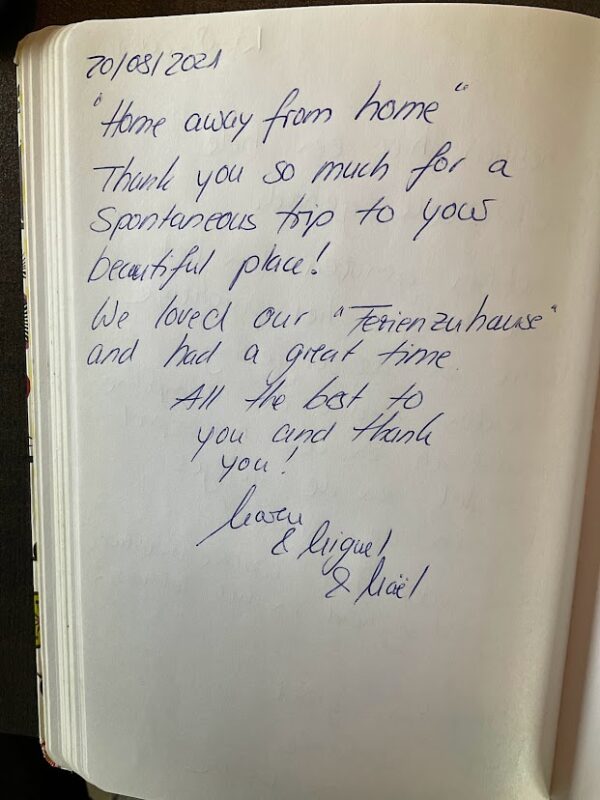 20/08/2021
"Home away from home"
Thank you so much for a
Spontaneous trip to your
beautiful place!
We loved our "Ferienzuhause"
and had a great time.
All the best to
you and thank
you!
& Miguel